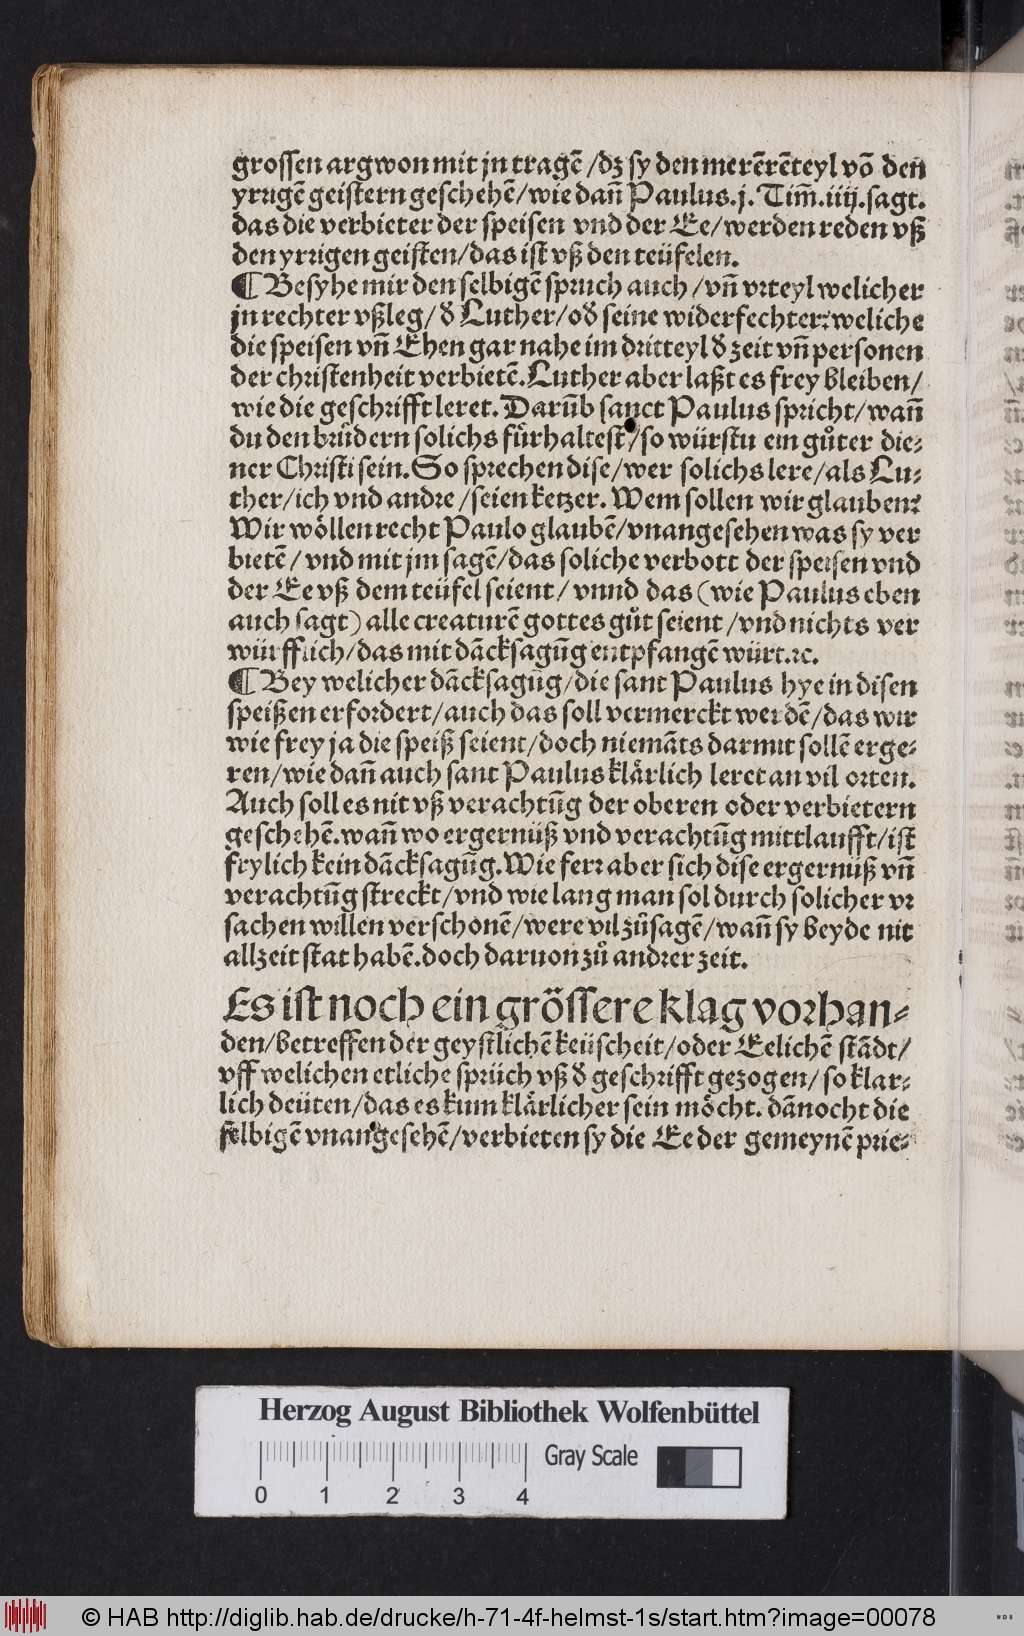 grossen argwon mit jn tragē /dz sy den merērēteyl vō den
yrrigē geistern geschehē/wie dañ Paulus.j. Tim̄.iiij.sagt.
das die verbieter der speisen vnd der Ee/werden reden vß
den yrrigen geisten/das ist vß den teüfelen.
¶ Besyhe mir den selbigē spruch auch /vñ vrteyl welicher
jn rechter vßleg/ đ Luther/ođ seine widerfechter:weliche
die speisen vñ Ehen gar nahe im dritteyl đ zeit vñ personen
der christenheit verbietē.Luther aber laßt es frey bleiben/
wie die geschrifft leret. Darūb sanct Paulus spricht/wañ
du den brůdern solichs fürhaltest /so würstu ein gůter die⸗
ner Christi sein. So sprechen dise/wer solichs lere/als Lu⸗
ther/ich vnd andre /seien ketzer. Wem sollen wir glauben?
Wir wöllen recht Paulo glaubē/vnangesehen was sy ver
bietē / vnd mit jm sagē/das soliche verbott der speisen vnd
der Ee vß dem teüfel seient/ vnnd das (wie Paulus eben
auch sagt) alle creaturē gottes gůt seient /vnd nichts ver
würfflich/das mit dācksagūg entpfangē würt.ꝛc.
¶ Bey welicher dācksagūg/die sant Paulus hye in disen
speißen erfordert/auch das soll vermerckt werdē/das wir
wie frey ja die speiß seient/doch niemāts darmit sollē erge⸗
ren/wie dañ auch sant Paulus klärlich leret an vil orten.
Auch soll es nit vß verachtūg der oberen oder verbietern
geschehē.wañ wo ergernüß vnd verachtūg mittlaufft/ist
frylich kein dācksagūg.Wie ferr aber sich dise ergernüß vñ
verachtūg streckt/vnd wie lang man sol durch solicher vr
sachen willen verschonē/were vil zůsagē/wañ sy beyde nit
allzeit stat habē.doch daruon zů andrer zeit.
Es ist noch ein grössere klag vorhan⸗
den/betreffen der geystlichē keüscheit/oder Eelichē städt/
vff welichen etliche sprüch vß đ geschrifft gezogen/so klar⸗
lich deüten/das es kum klärlicher sein möcht. dānocht die
selbigē vnangesehē/verbieten sy die Ee der gemeynē prie⸗
Herzog August Bibliothek Wolfenbüttel
Gray Scale
0 1 2 3 4
© HAB http://diglib.hab.de/drucke/h-71-4f-helmst-1s/start.htm?image=00078